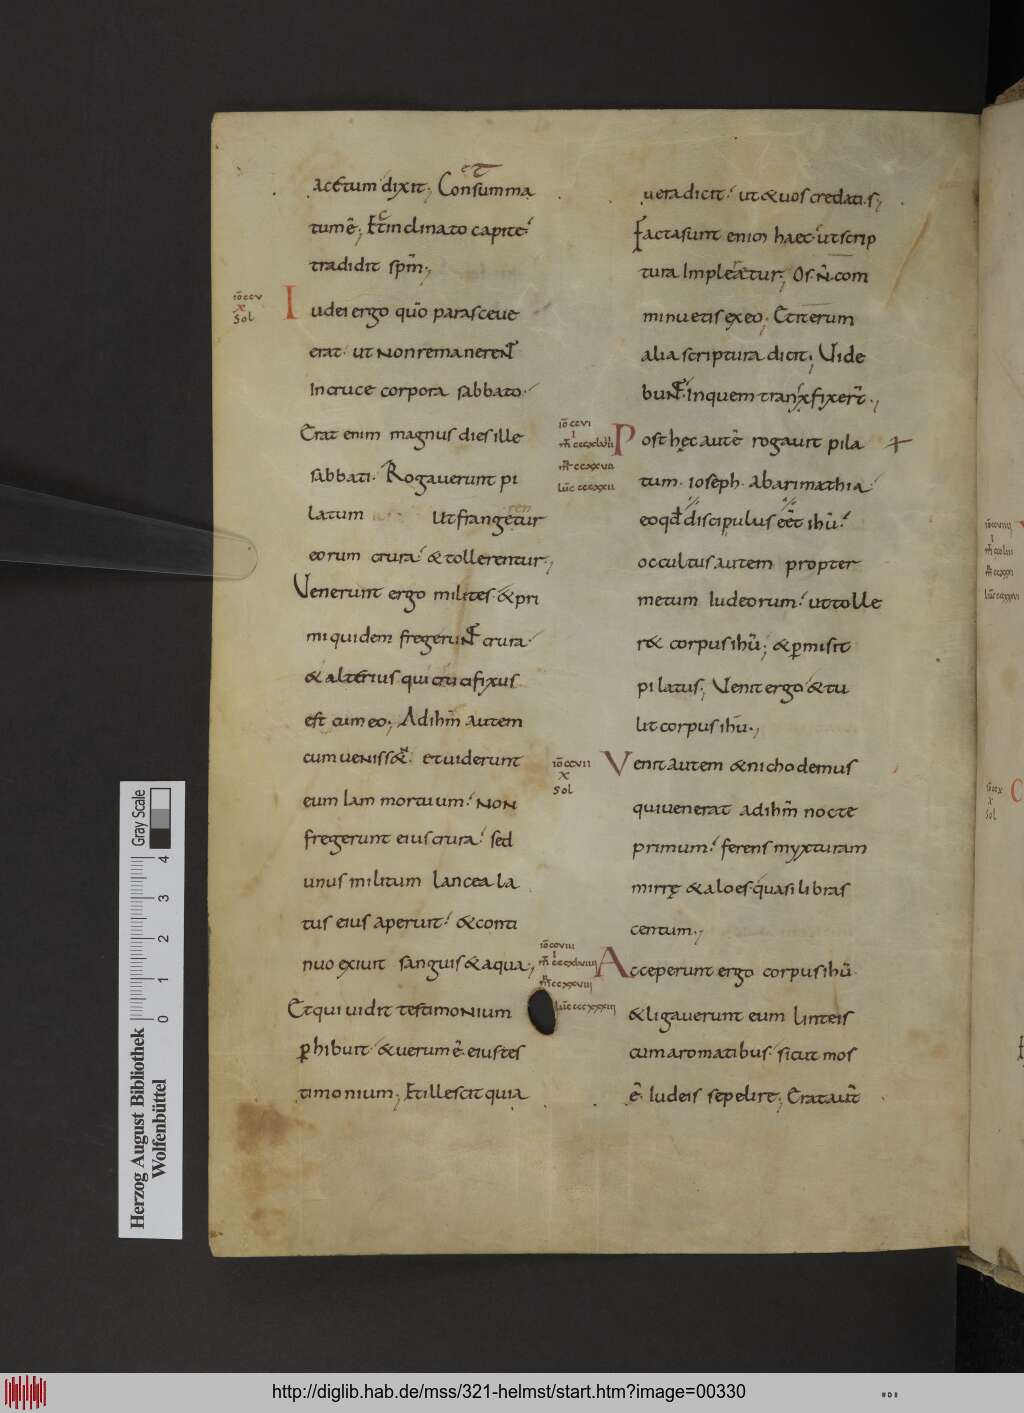 acetum dixit; Consumma
tum ē; Et inclinato capite
tradidit spm̄;
iō ccv
x
Sol
Iudei ergo quō parasceue
erat. ut non remanerent
In cruce corpora sabbato.
Erat enim magnus dies ille
sabbati. Rogauerunt pi
latum ut frangetur
ren
eorum crura. & tollerentur;
Venerunt ergo milites. & pri
mi quidem fregerunt crura.
& alterius qui crucifixus
est cum eo; Ad ihm̄ autem
cum uenissent. et uiderunt
eum Iam mortuum. non
fregerunt eius crura. sed
unus militum lancea la
tus eius aperuit. & conti
nuo exiuit sanguis & aqua;
Et qui uidit testimonium
phibuit. & uerum ē. eius tes
timonium; Et ille scit quia
uera dicit. ut & uos credatis;
Facta sunt enim haec. ut scrip
tura Impleatur; Os n̄ com
minuetis ex eo; Et iterum
alia scriptura dicit; Vide
bunt. Inquem transfixer̄t;
iō ccvi
i
m̄r ccxxvii
lūc cccxxxii
Post hęc autē rogauit pila
tum. ioseph. Abarimathia.
eo qd̄ discipulus eēt ihū.
occultus autem propter
metum Iudeorum. ut tolle
r& corpus ihū; & pmisit
pilatus; Venit ergo & tu
lit corpus ihū;
iō ccvii
x
Sol
Venit autem & nichodemus
qui uenerat ad ihm̄ nocte
primum. ferens myxturam
mirrę & aloes. quasi libras
centum;
iō ccviii
i
m̄ ccxlviiii
m̄r ccxxviii
lūc cccxxxiii
Acceperunt ergo corpus ihū.
& ligauerunt eum linteis
cum aromatibus. sicut mos
ē. Iudeis sepelire; Erat aut̄
Gray Scale
0 1 2 3 4
Herzog August Bibliothek
Wolfenbüttel
http://diglib.hab.de/mss/321-helmst/start.htm?image=00330